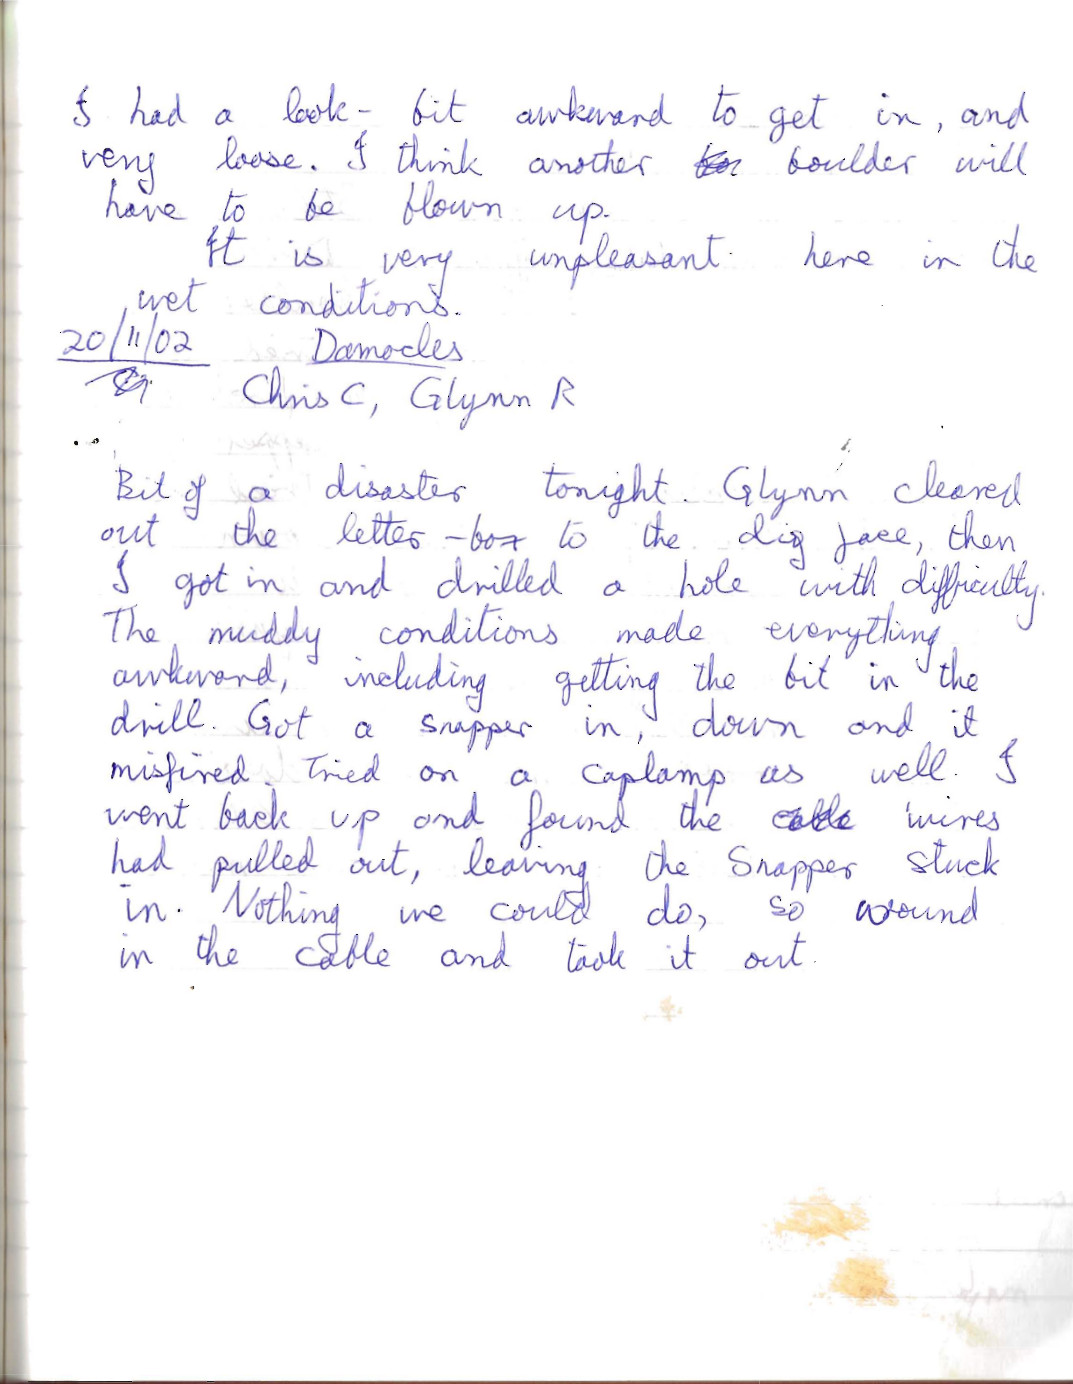 I had a look - bit awkward to get in, and
very loose. I think another boulder will
have to be blown up.
It is very unpleasant here in the
wet conditions.
20/11/02 Damocles
Chris C, Glynn R
Bit of a disaster tonight. Glynn cleared
out the letter-box to the dig face, then
I got in and drilled a hole with difficulty.
The muddy conditions made everything
awkward, including getting the bit in the
drill. Got a snapper in, down and it
misfired. Tried on a caplamp as well. I
went back up and found the cable wires
had pulled out, leaving the Snapper stuck
in. Nothing we could do, so wound
in the cable and took it out.